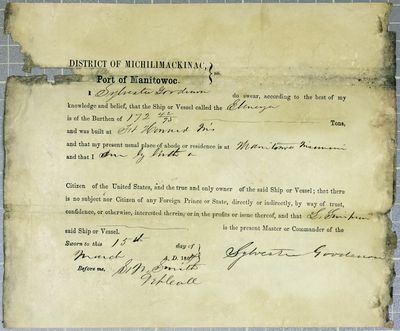 DISTRICT OF MICHILIMACKINAC,
Port of Manitowoc.
I Sylvester Goodenow do swear, according to the best of my
knowledge and belief, that the Ship or Vessel called the Ebenezer
is of the Burthen of 172 Tons,
and was built at Ft Howard Wis
and that my present usual place of abode or residence is at Manitowoc
and that I am by birth a
Citizen of the United States, and the true and only owner of the said Ship or Vessel; that there
is no subject nor Citizen of any Foreign Prince or State, directly or indirectly, by way of trust,
confidence, or otherwise, interested therein, or in the profits or issue thereof, and that
said Ship or Vessel. is the present Master or Commander of the
Sworn to this 15th day of
March A.D. 18
Before me, Smith
Sylvester Goodenow